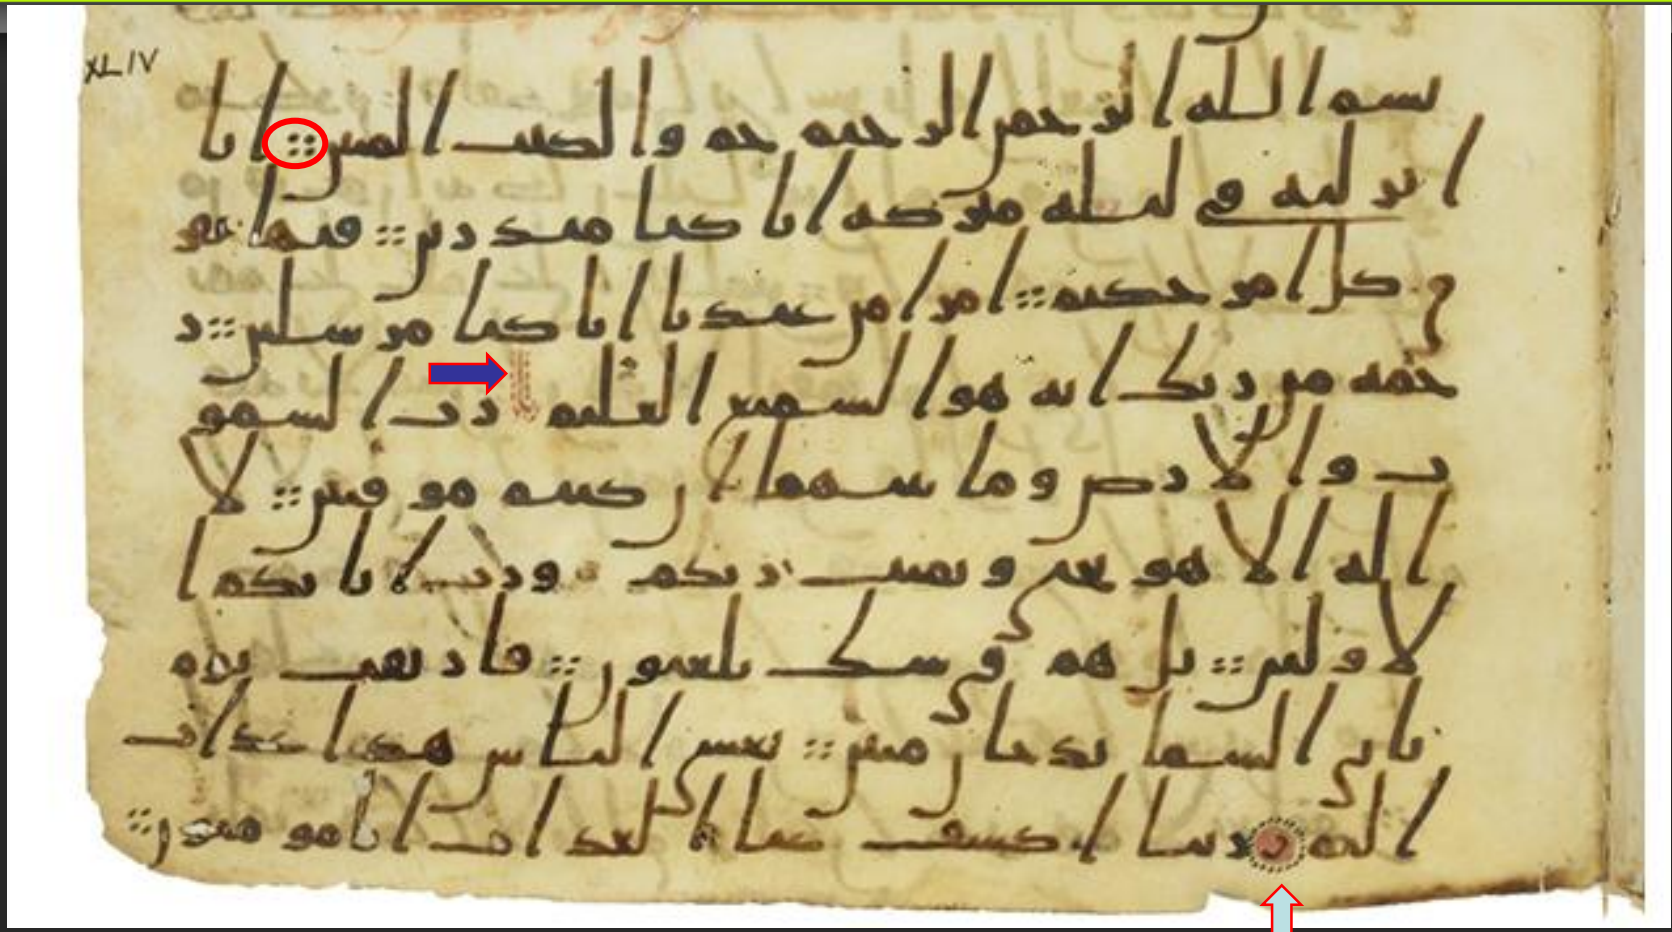 XLIV
بسم الله الرحمن الرحيم حم والكتب المبين :: انا
انزلنه في ليلة مبركة انا كنا منذرين :: فيها يفر
ق كل امر حكيم :: امرا من عندنا انا كنا مرسلين :: ر
حمة من ربك انه هو السميع العليم رب السمو
ت والارض وما بينهما ان كنتم موقنين :: لا
اله الا هو يحي ويميت ربكم ورب ابايكم ا
لاولين :: بل هم في شك يلعبون :: فارتقب يوم
تاتي السما بدخان مبين :: يغشى الناس هذا عذاب
اليم ربنا اكشف عنا العذاب انا مومنون ::